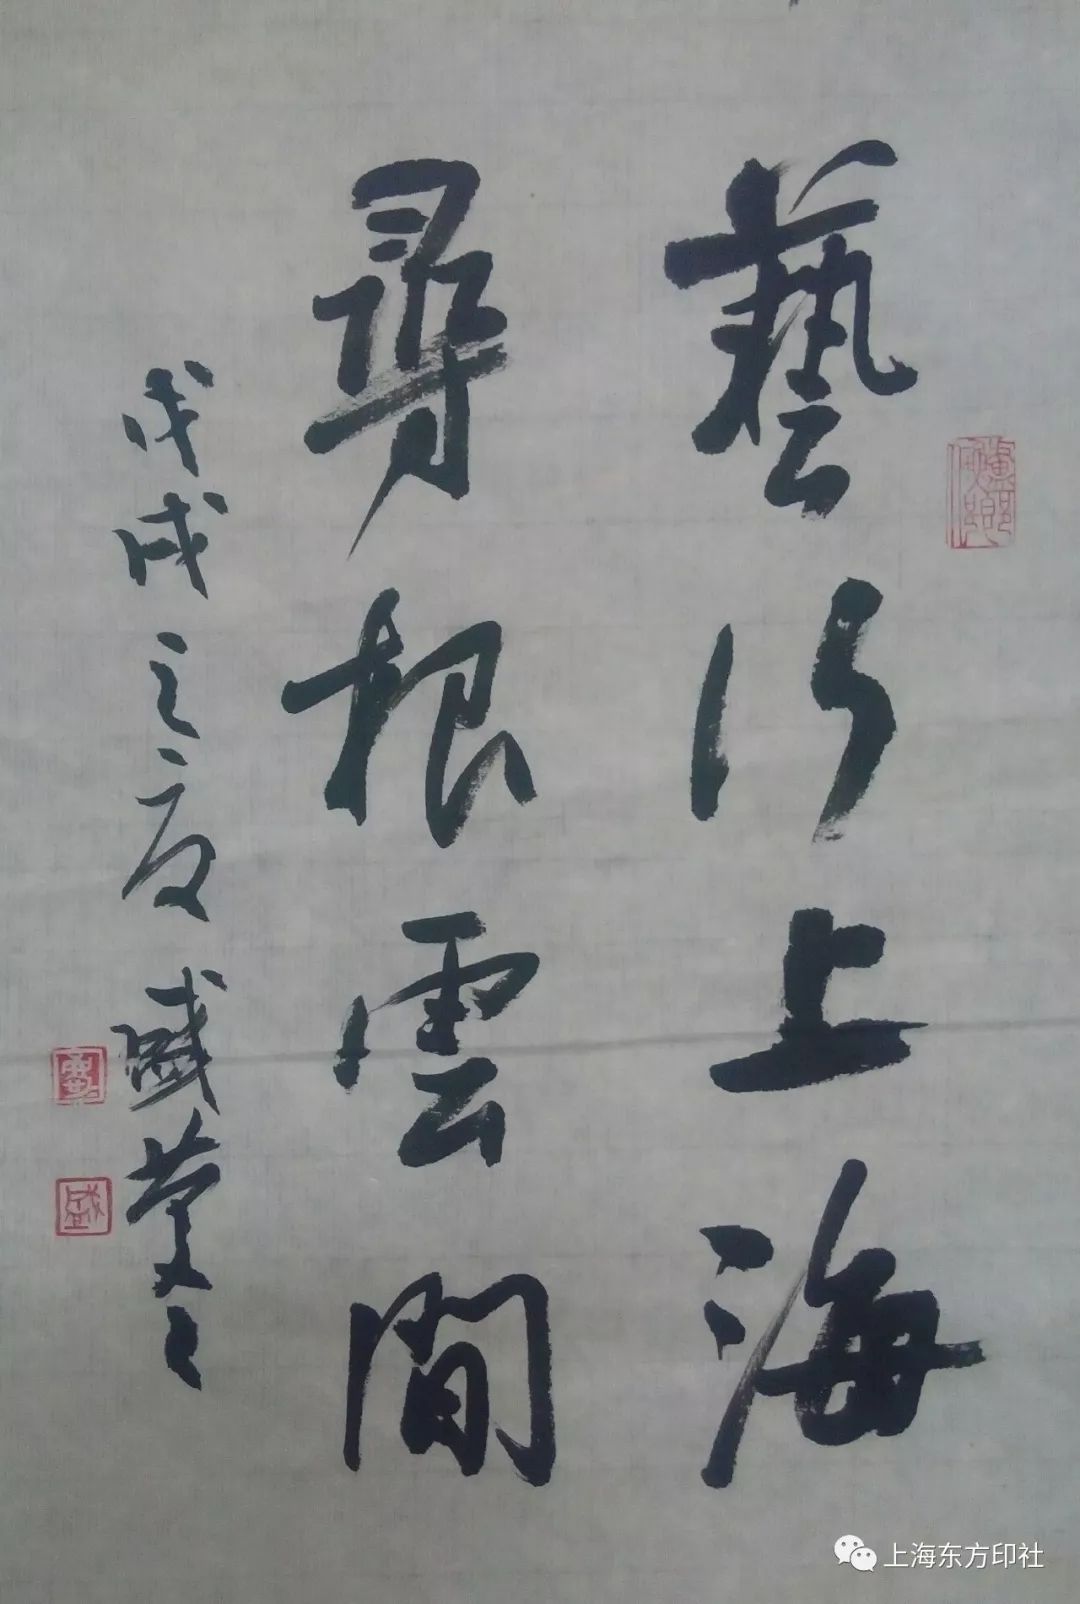 藝行上海
尋根雲間
戊戌之夏 盛蘭
盛
上海东方印社